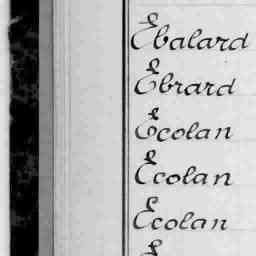 Ebalard
Ebrard
Ecolan
Ecolan
Ecolan